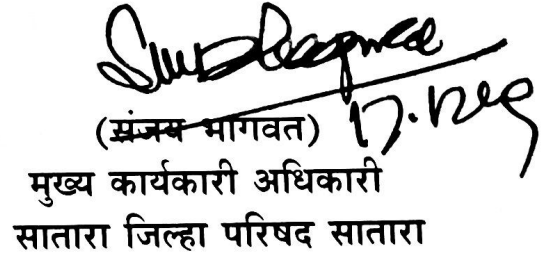 (संजय भागवत)
मुख्य कार्यकारी अधिकारी
सातारा जिल्हा परिषद सातारा